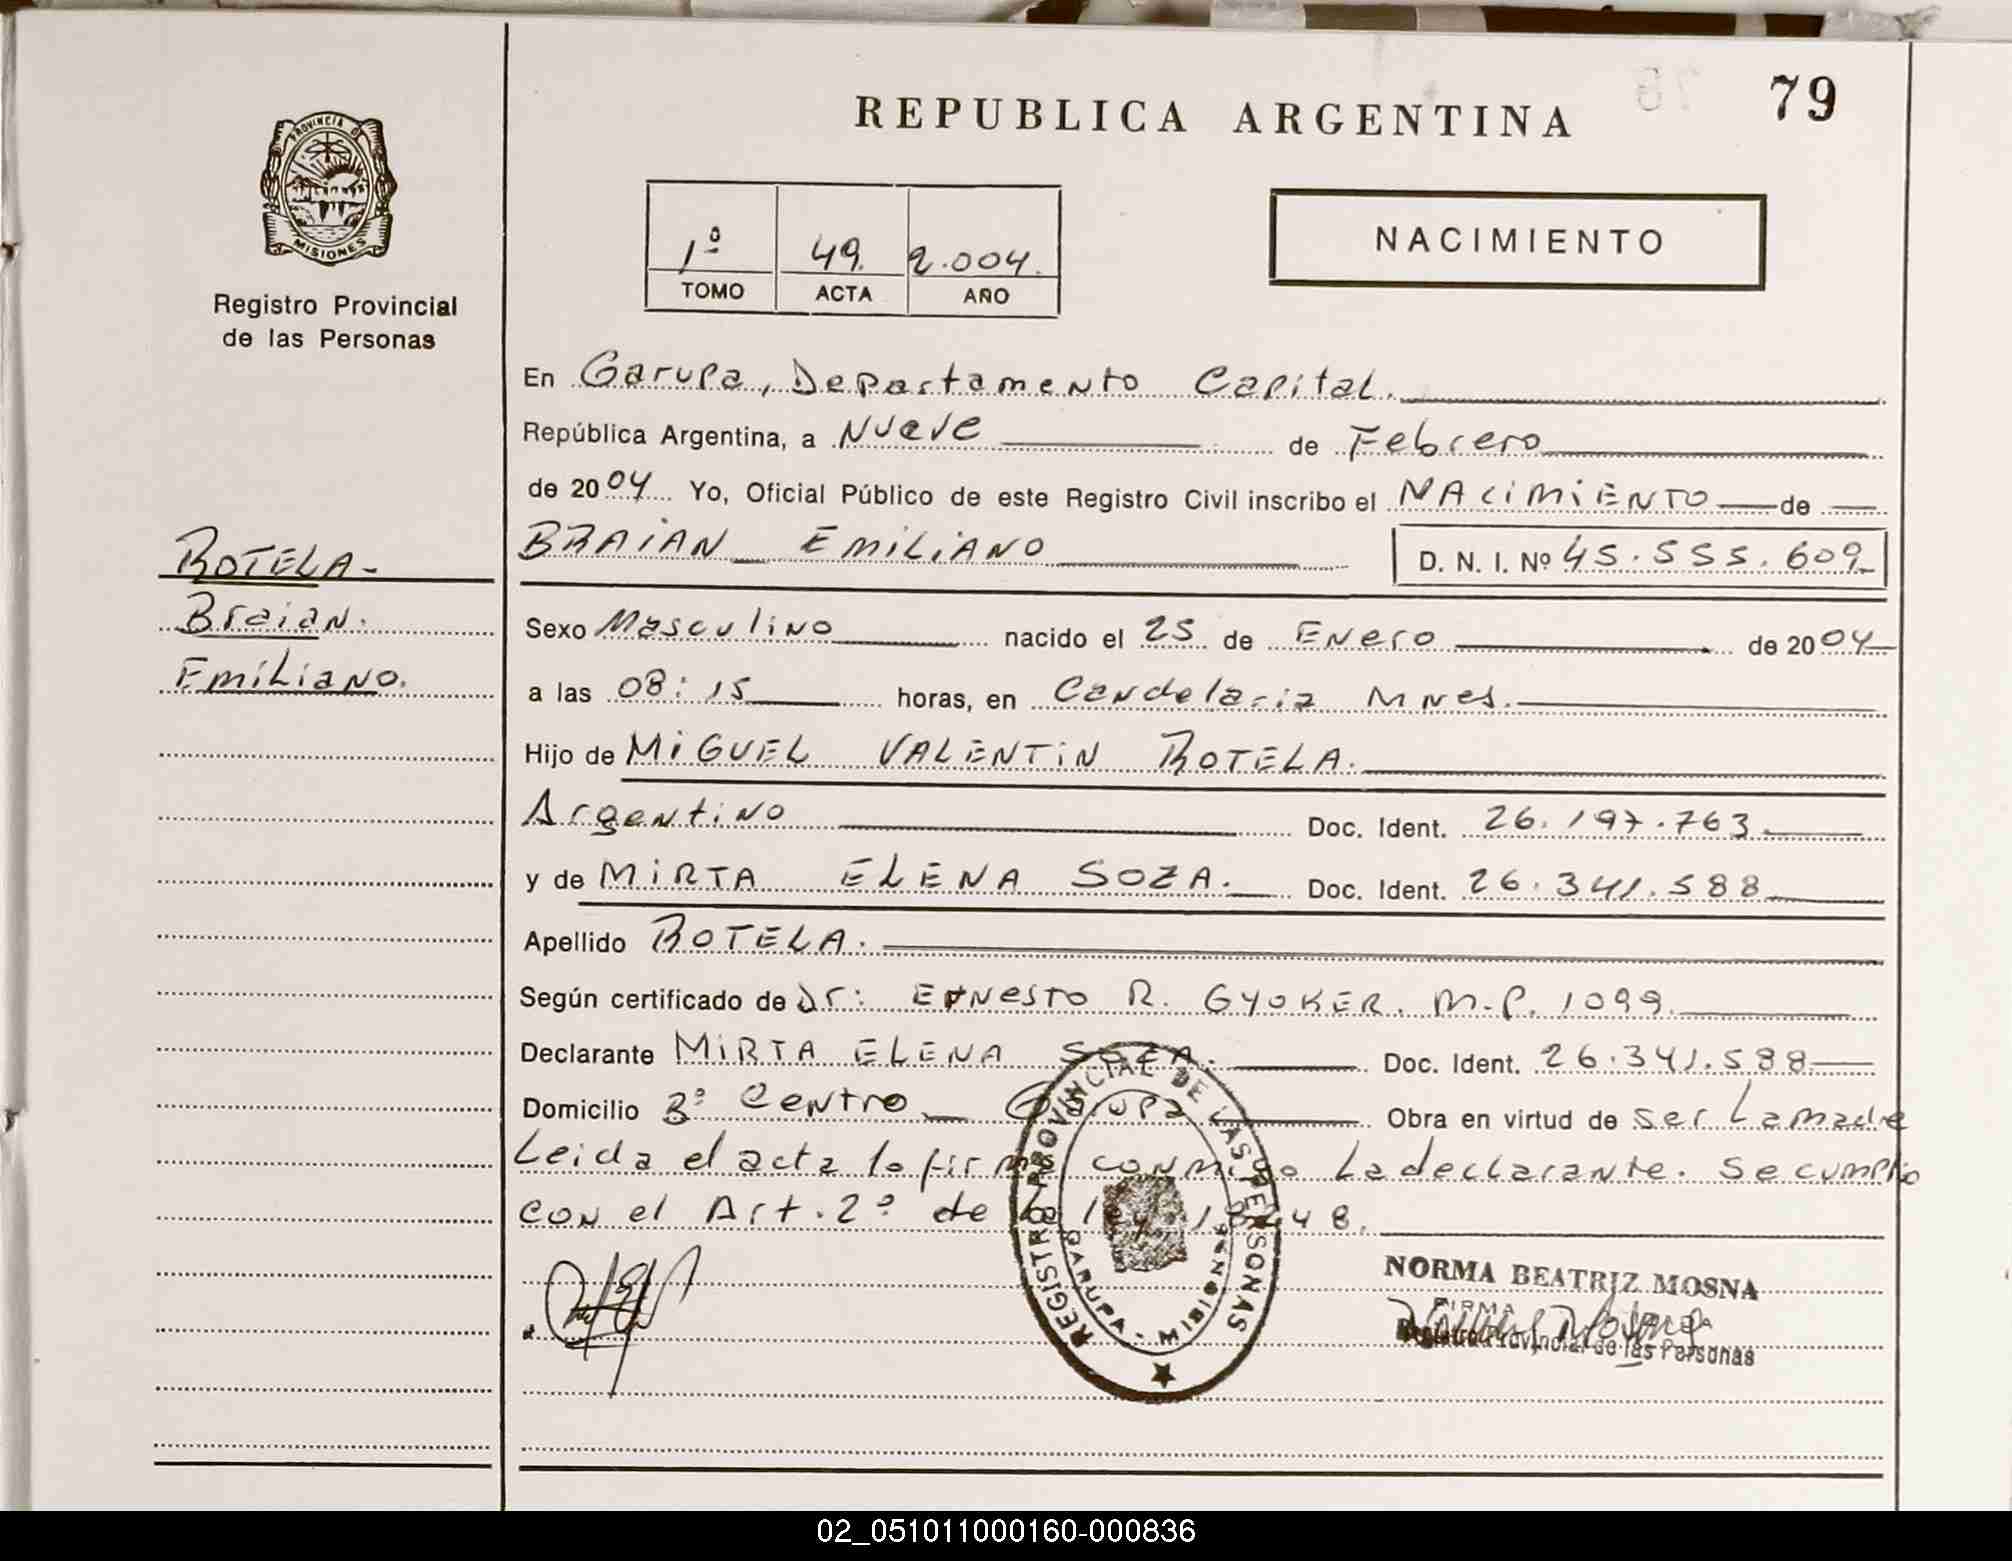 79
REPUBLICA ARGENTINA
PROVINCIA D
MISIONES
Registro Provincial
de las Personas
1º 49. 2.004.
TOMO ACTA AÑO
NACIMIENTO
En Garupa, Departamento Capital.
República Argentina, a Nueve de Febrero
de 2004 Yo, Oficial Público de este Registro Civil inscribo el NACIMIENTO de
ROTELA-
Braian.
Emiliano.
BRAIAN EMILIANO D. N. I. Nº 45.555.609
Sexo Masculino nacido el 25 de Enero de 2004
a las 08:15 horas, en Candelaria Mnes.
Hijo de MIGUEL VALENTIN ROTELA.
Argentino Doc. Ident. 26.197.763
y de MIRTA ELENA SOZA. Doc. Ident. 26.341.588
Apellido ROTELA.
Según certificado de Dr: Ernesto R. GYOKER. M.P. 1099.
Declarante MIRTA ELENA SOZA. Doc. Ident. 26.341.588
Domicilio Bº Centro Garupa Obra en virtud de ser La madre
Leida el acta lo firma conmigo La declarante. Se cumplio
con el Art. 2º de la ley
REGISTRO PROVINCIAL DE LAS PERSONAS
GARUPA - MISIONES
NORMA BEATRIZ MOSNA
FIRMA
Registro Provincial de las Personas
02_051011000160-000836